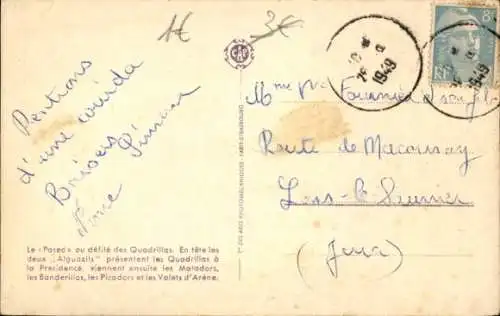 1€
3€
Rentrons
d'une corrida
Baisers
8F
RF
1949
1949
Mme Vve Fournier & son fils
Route de Macornay
Lons-le-Saunier
(Jura)
Le «Paseo» ou défilé des Quadrillas. En tête les
deux „Alguazils" présentent les Quadrillas à
la Présidence, viennent ensuite les Matadors,
les Banderillas, les Picadors et les Valets d'Arène.